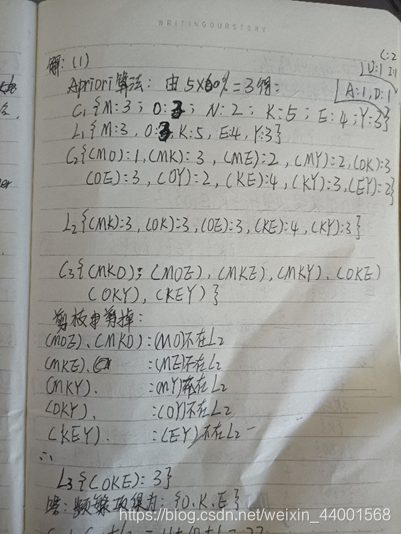 WRITINGOURSTORY
解:(1)
Apriori算法: 由5×60%=3得:
C:2
D:1
A:1, D:1
C1{M:3; O:3; N:2; K:5; E:4; Y:3}
L1{M:3, O:3, K:5, E:4, Y:3}
C2{(MO):1,(MK):3,(ME):2,(MY):2,(OK):3
(OE):3,(OY):2,(KE):4,(KY):3,(EY):2}
L2{(MK):3,(OK):3,(OE):3,(KE):4,(KY):3}
C3{(MKO),(MOE),(MKE),(MKY),(OKE)
(OKY),(KEY)}
剪枝 剪掉:
(MOE)、(MKO):(MO)不在L2
(MKE).:(ME)不在L2
(MKY).:(MY)不在L2
(OKY).:(OY)不在L2
(KEY).:(EY)不在L2
∴
L3{(OKE):3}
答:频繁项集为:{O,K,E}
https://blog.csdn.net/weixin_44001568